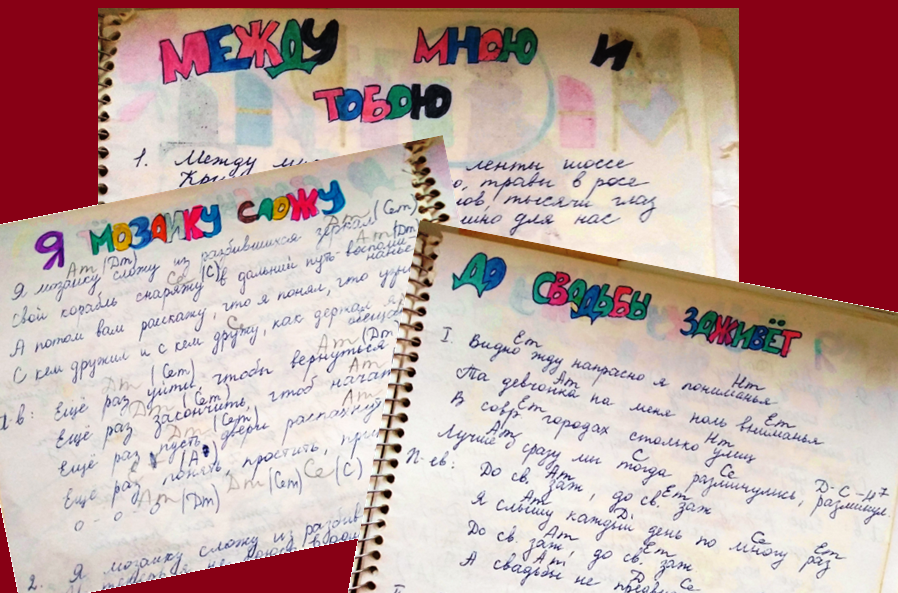 МЕЖДУ МНОЮ И
ТОБОЮ
1. Между ленты шоссе
травы в росе
тысячи глаз
для нас
Я МОЗАИКУ СЛОЖУ
Am (Dm) Dm (Cem)
Я мозаику сложу из разбившихся зеркал
(C) Am (Dm)
Свой корабль снаряжу в дальний путь
А потом вам расскажу, что я понял, что
С кем дружил и с кем дружу, как держал я
Dm (Cem) Am (Dm)
П-в: Ещё раз уйти, чтобы вернуться
Dm (Cem) Am
Ещё раз закончить, чтоб начать
Dm (Cem) Am
Ещё раз пусть двери
(A)
Ещё раз понять, простить,
о - о - Am (Dm) Dm (Cem) Ce (C)
2. Я мозаику сложу из
ДО СВАДЬБЫ ЗАЖИВЁТ
Em Hm
I. Видно жду напрасно я пониманья
Am Em
Та девчонка на меня ноль вниманья
Em Hm
В совр. городах столько улиц
Am C Ce D - C - H7
Лучше б сразу мы тогда разминулись,
Am Em
П-ев: До св. заж, до св. заж
Am D Ce Em
Я слышу каждый день по многу раз
Am Em
До св. заж, до св. заж
Am D Ce
А свадьбы не